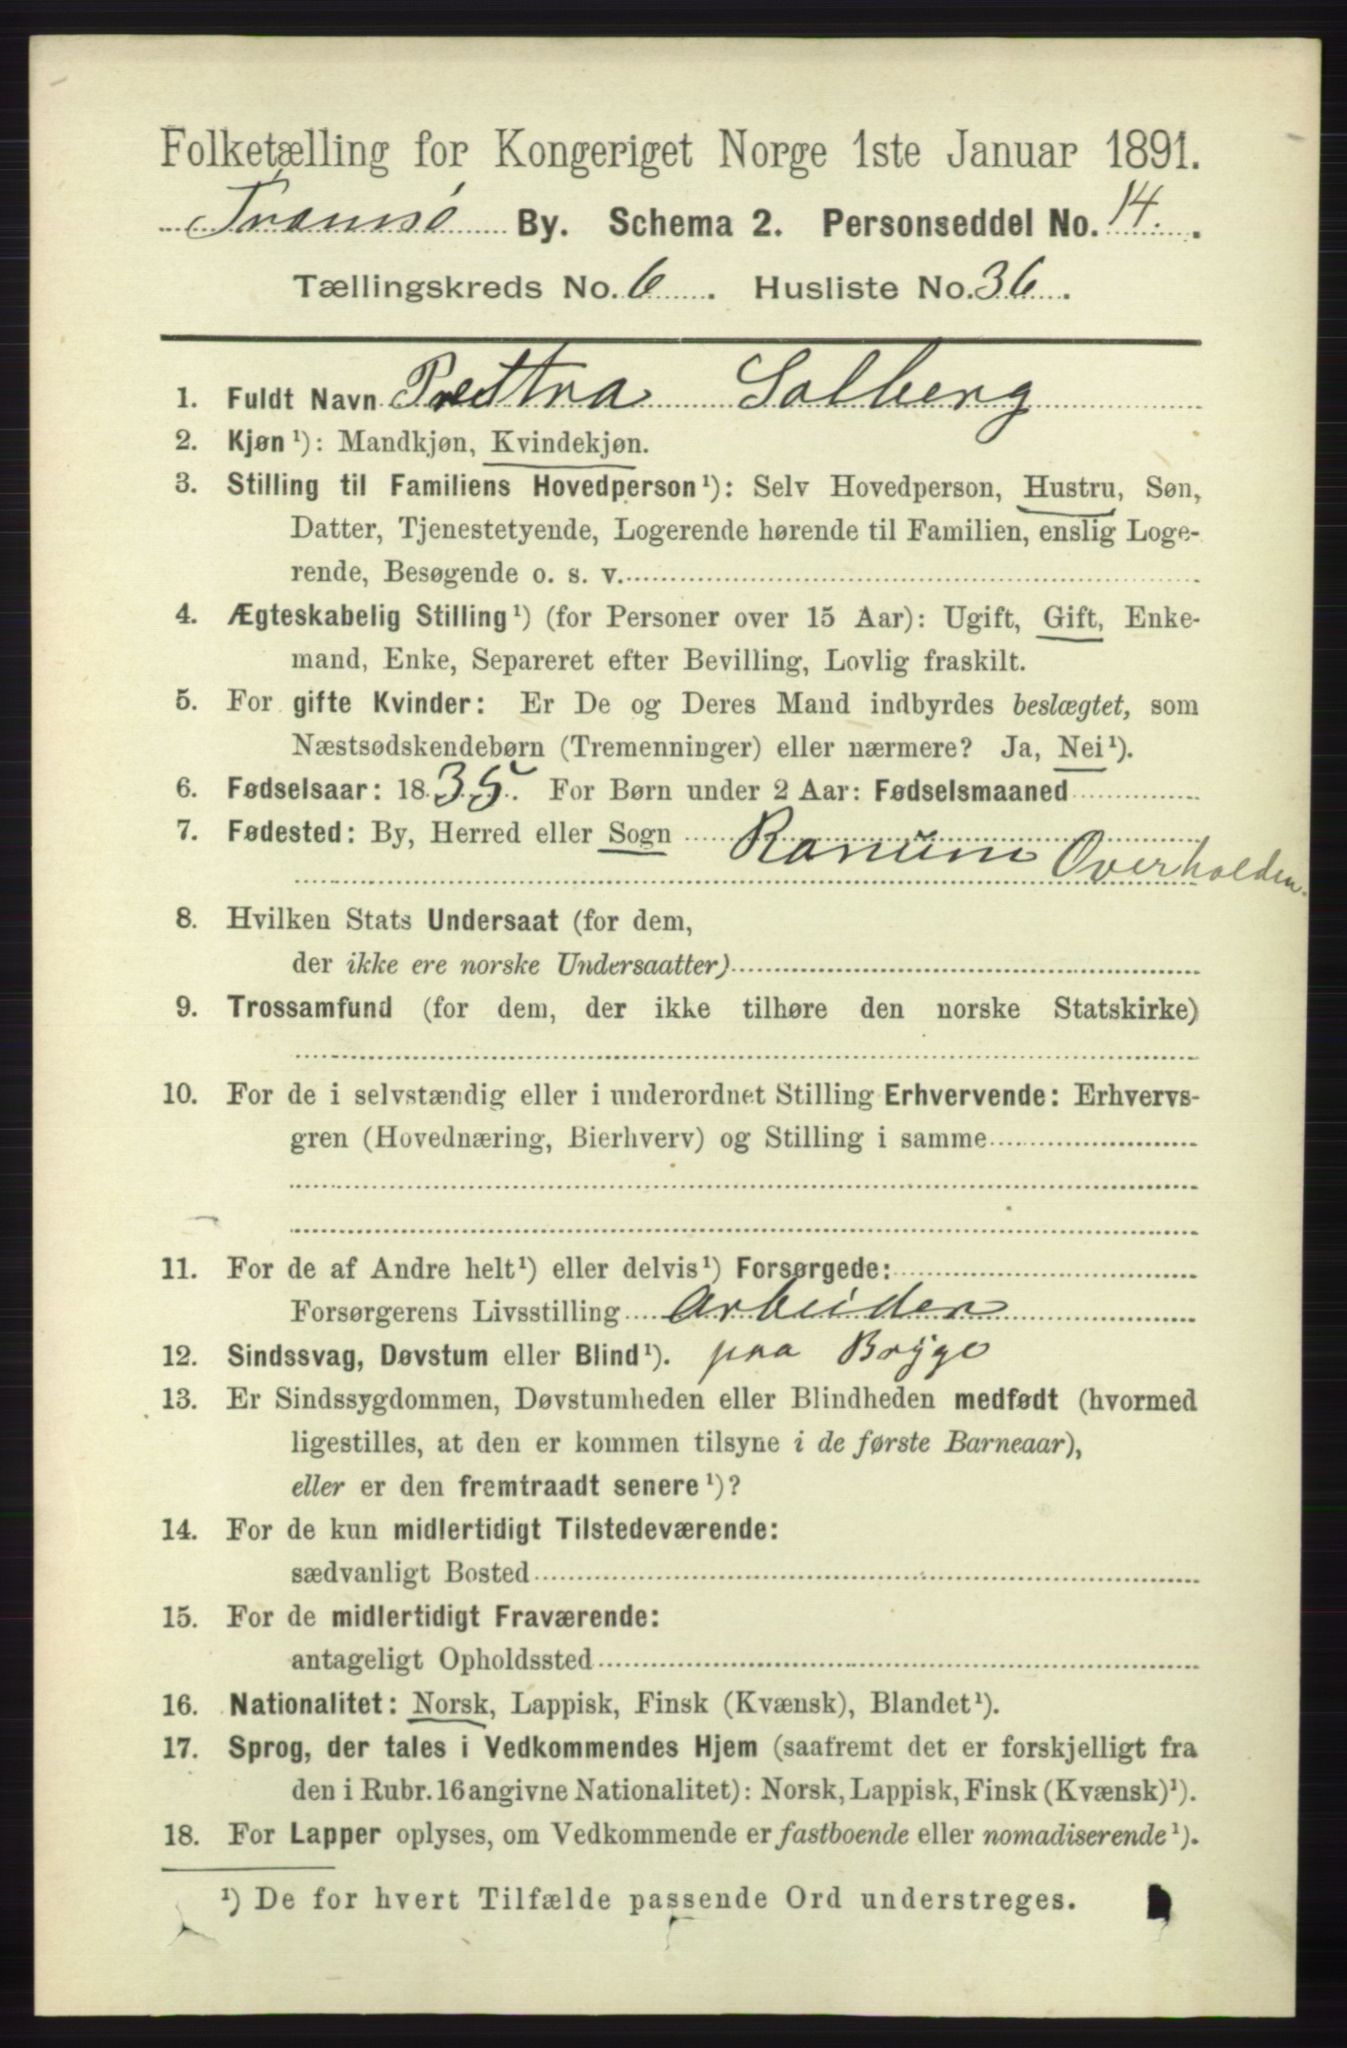 Folketælling for Kongeriget Norge 1ste Januar 1891.
Tromsø By. Schema 2. Personseddel No. 14.
Tællingskreds No. 6. Husliste No. 36.
1. Fuldt Navn Petra Solberg
2. Kjøn¹): Mandkjøn, Kvindekjøn.
3. Stilling til Familiens Hovedperson¹): Selv Hovedperson, Hustru, Søn,
Datter, Tjenestetyende, Logerende hørende til Familien, enslig Loge-
rende, Besøgende o. s. v.
4. Ægteskabelig Stilling¹) (for Personer over 15 Aar): Ugift, Gift, Enke-
mand, Enke, Separeret efter Bevilling, Lovlig fraskilt.
5. For gifte Kvinder: Er De og Deres Mand indbyrdes beslægtet, som
Næstsødskendebørn (Tremenninger) eller nærmere? Ja, Nei¹).
6. Fødselsaar: 1835. For Børn under 2 Aar: Fødselsmaaned
7. Fødested: By, Herred eller Sogn Ranum Overhalden.
8. Hvilken Stats Undersaat (for dem,
der ikke ere norske Undersaatter)
9. Trossamfund (for dem, der ikke tilhøre den norske Statskirke)
10. For de i selvstændig eller i underordnet Stilling Erhvervende: Erhvervs-
gren (Hovednæring, Bierhverv) og Stilling i samme
11. For de af Andre helt¹) eller delvis¹) Forsørgede:
Forsørgerens Livsstilling Arbeider
12. Sindssvag, Døvstum eller Blind¹). paa Brygge
13. Er Sindssygdommen, Døvstumheden eller Blindheden medfødt (hvormed
ligestilles, at den er kommen tilsyne i de første Barneaar),
eller er den fremtraadt senere¹)?
14. For de kun midlertidigt Tilstedeværende:
sædvanligt Bosted
15. For de midlertidigt Fraværende:
antageligt Opholdssted
16. Nationalitet: Norsk, Lappisk, Finsk (Kvænsk), Blandet¹).
17. Sprog, der tales i Vedkommendes Hjem (saafremt det er forskjelligt fra
den i Rubr. 16 angivne Nationalitet): Norsk, Lappisk, Finsk (Kvænsk)¹).
18. For Lapper oplyses, om Vedkommende er fastboende eller nomadiserende¹).
¹) De for hvert Tilfælde passende Ord understreges.